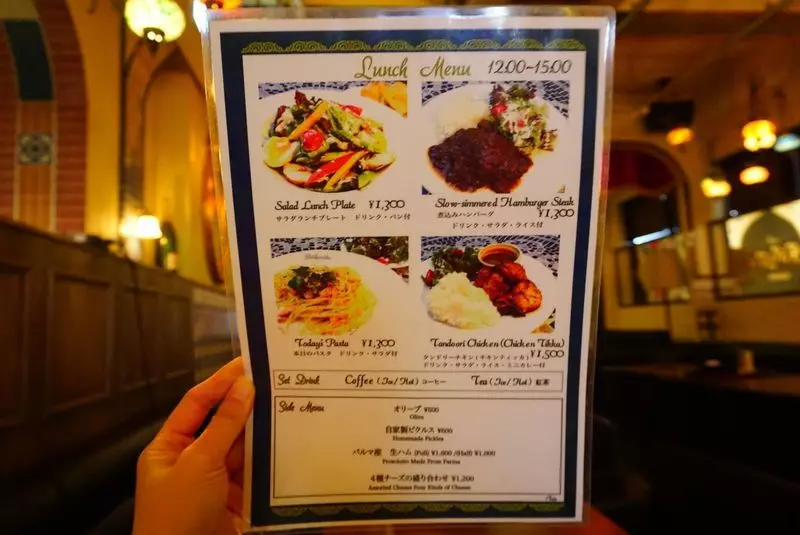 Lunch Menu 12:00-15:00
Salad Lunch Plate ¥1,300
サラダランチプレート ドリンク・パン付
Slow-simmered Hamburger Steak
煮込みハンバーグ ¥1,300
ドリンク・サラダ・ライス付
Today's Pasta ¥1,300
本日のパスタ ドリンク・サラダ付
Tandoori Chicken (Chicken Tikka)
タンドリーチキン(チキンティッカ) ¥1,500
ドリンク・サラダ・ライス・ミニカレー付
Set Drink Coffee (Ice/Hot) コーヒー Tea (Ice/Hot) 紅茶
Side Menu
オリーブ ¥600
Olive
自家製ピクルス ¥600
Homemade Pickles
パルマ産 生ハム (Full) ¥1,800 /(Half) ¥1,000
Prosciutto Made From Parma
4種チーズの盛り合わせ ¥1,200
Assorted Cheese Four Kinds of Cheese